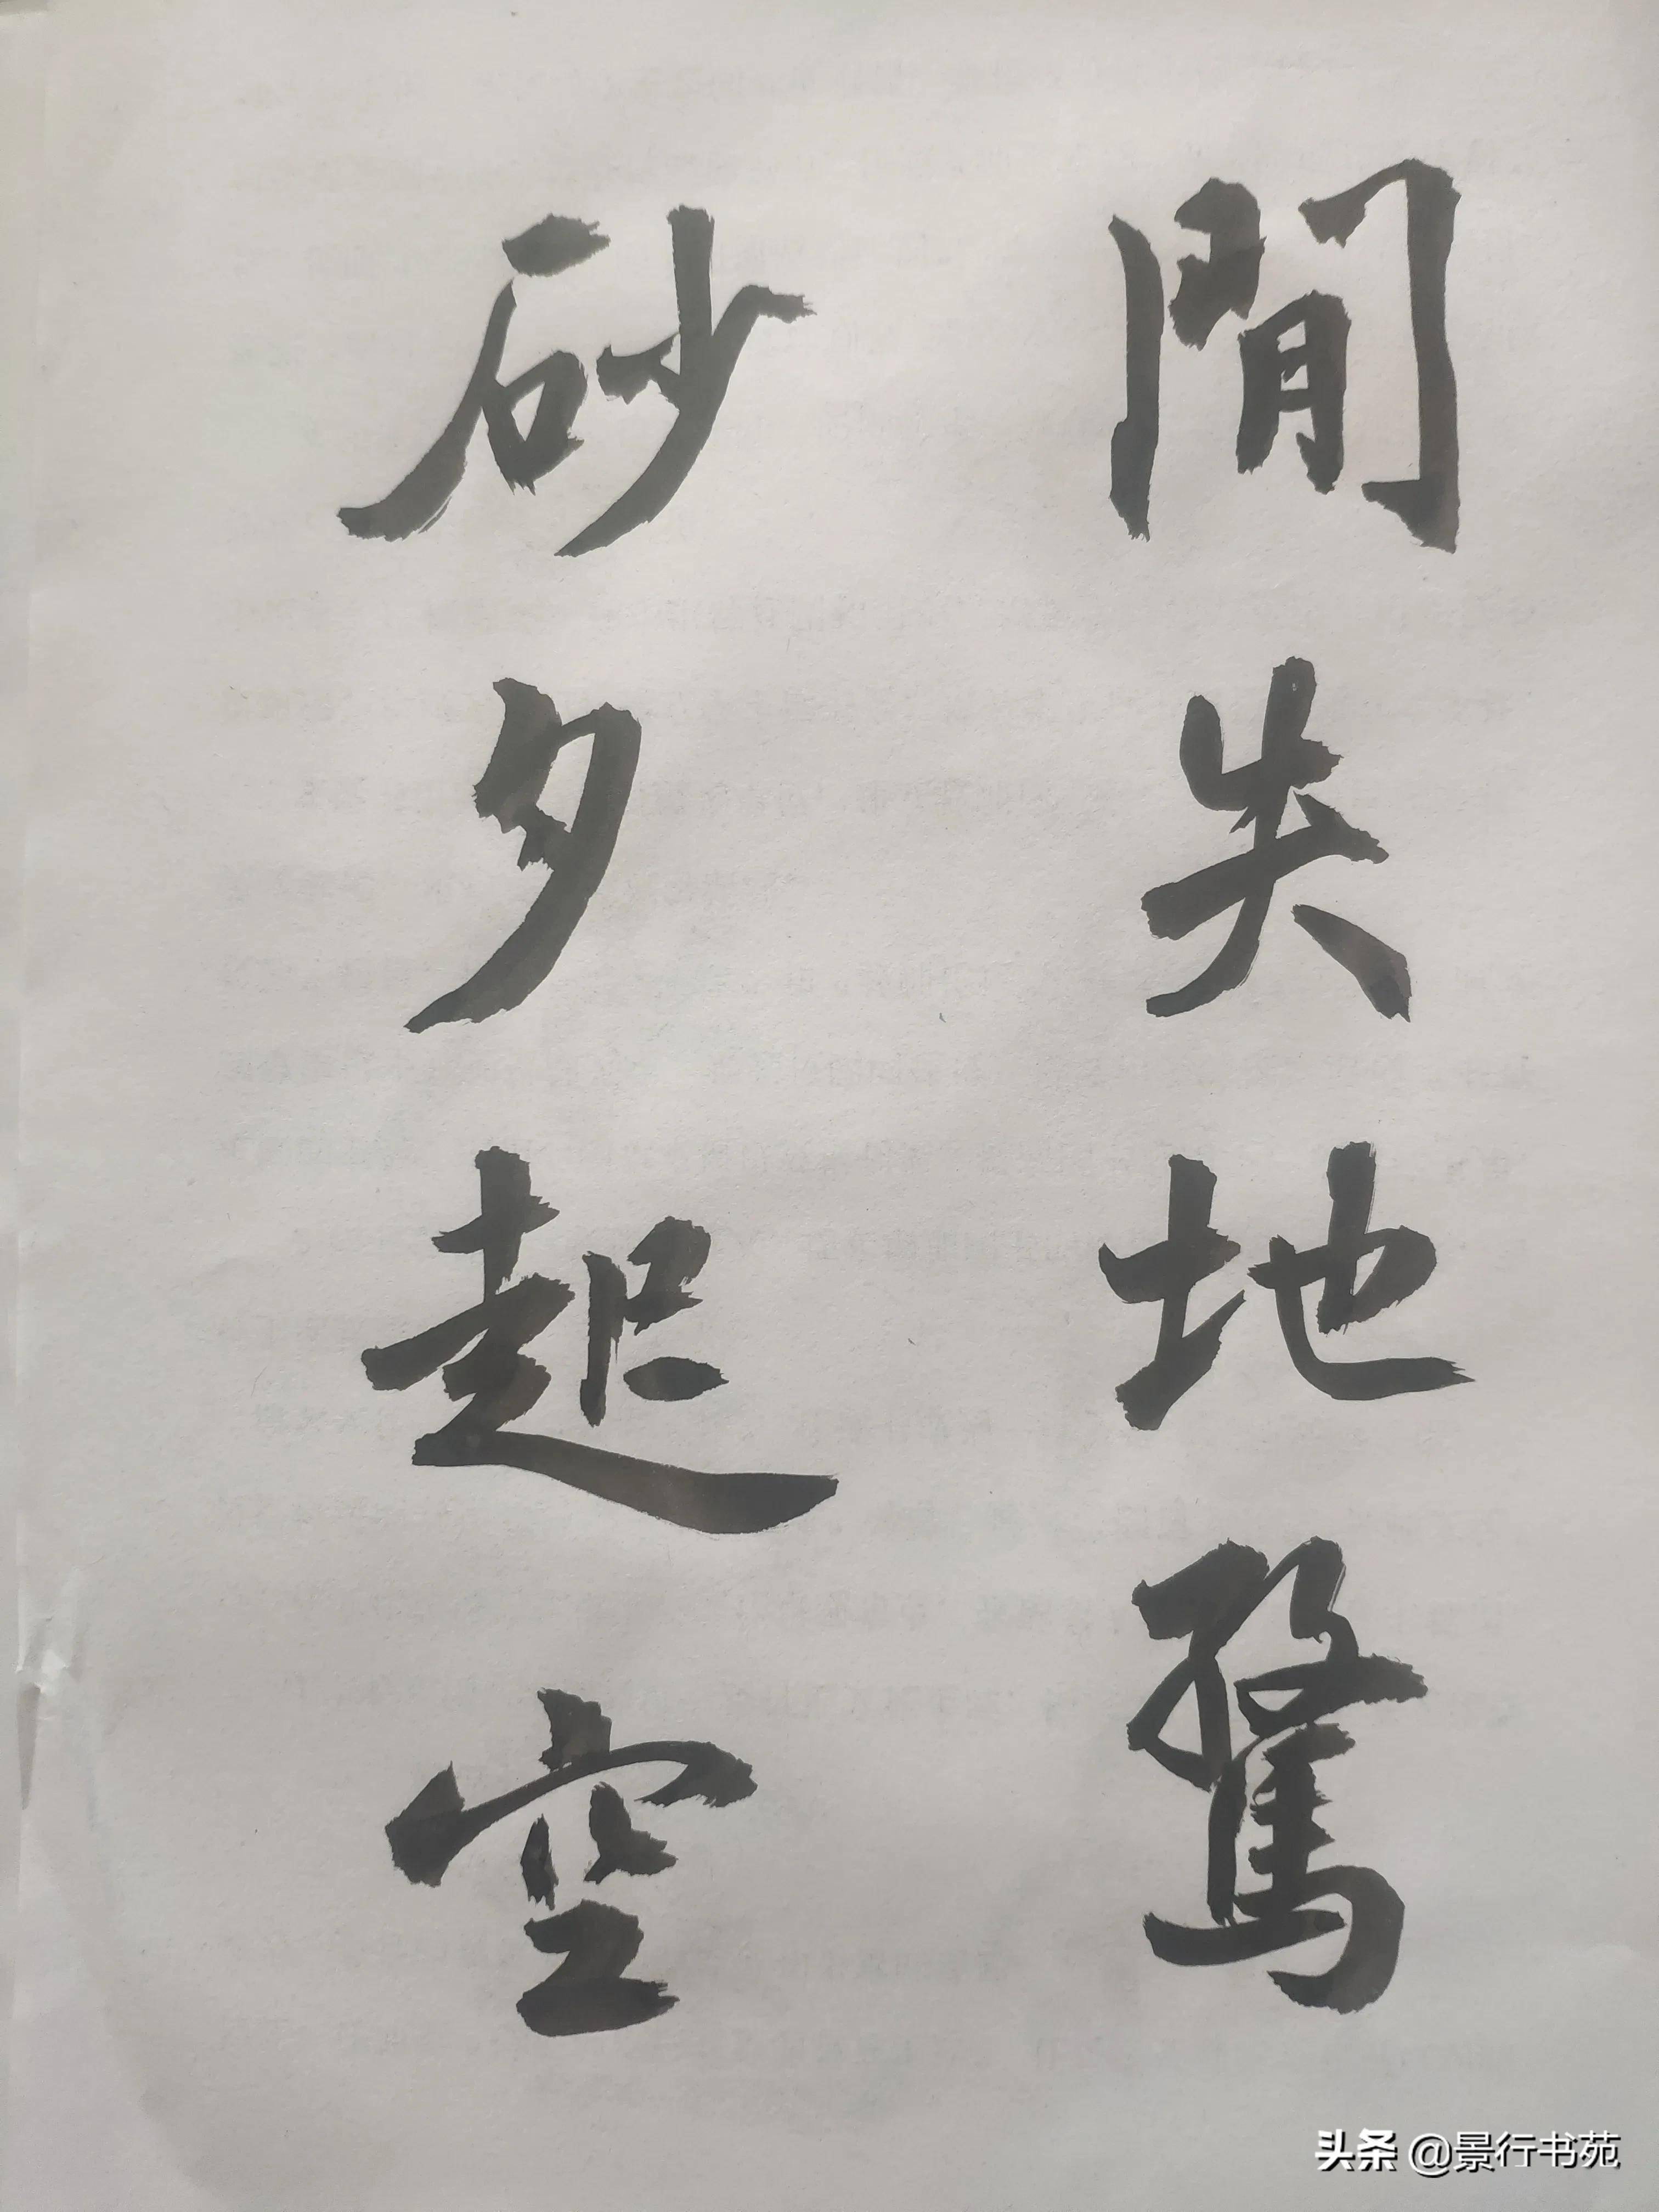 閒失地騖
砂夕起空
头条 @景行书苑